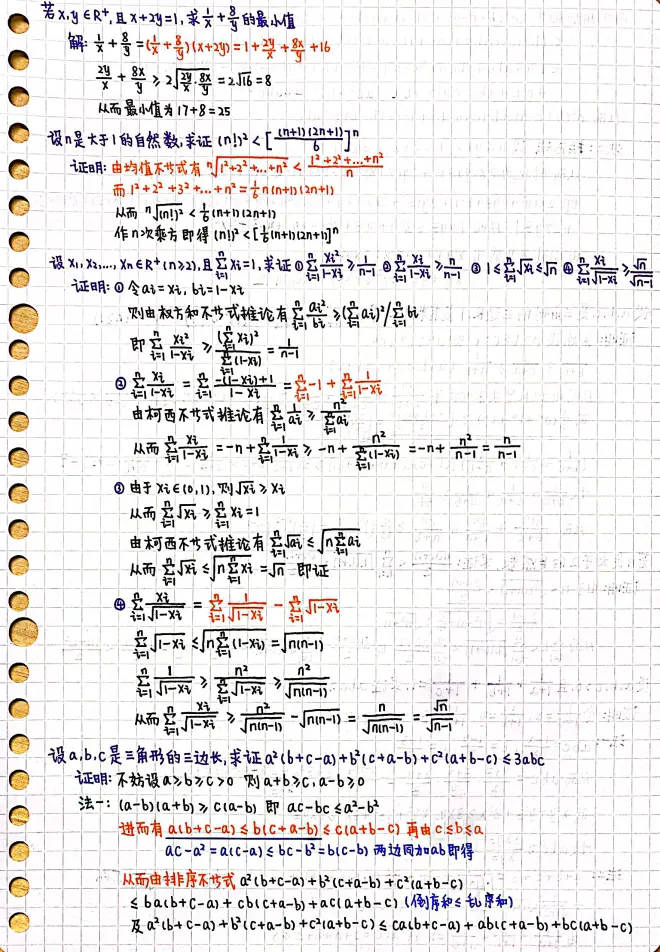 若x,y∈R⁺,且x+2y=1,求1/x+8/y的最小值
解: 1/x+8/y=(1/x+8/y)(x+2y)=1+2y/x+8x/y+16
2y/x+8x/y≥2√(2y/x·8x/y)=2√16=8
从而最小值为17+8=25
设n是大于1的自然数,求证(n!)²<[(n+1)(2n+1)/6]ⁿ
证明:由均值不等式有ⁿ√(1²+2²+...+n²)<(1²+2²+...+n²)/n
而1²+2²+3²+...+n²=1/6n(n+1)(2n+1)
从而ⁿ√(n!)²<1/6(n+1)(2n+1)
作n次乘方即得(n!)²<[1/6(n+1)(2n+1)]ⁿ
设x₁,x₂,...,xₙ∈R⁺(n≥2),且∑ⁿᵢ₌₁xᵢ=1,求证①∑ⁿᵢ₌₁xᵢ²/(1-xᵢ)≥1/(n-1) ②∑ⁿᵢ₌₁xᵢ/(1-xᵢ)≥n/(n-1) ③1≤∑ⁿᵢ₌₁√xᵢ≤√n ④∑ⁿᵢ₌₁xᵢ/√(1-xᵢ)≥√n/√(n-1)
证明:①令aᵢ=xᵢ,bᵢ=1-xᵢ
则由权方和不等式推论有∑ⁿᵢ₌₁aᵢ²/bᵢ≥(∑ⁿᵢ₌₁aᵢ)²/∑ⁿᵢ₌₁bᵢ
即∑ⁿᵢ₌₁xᵢ²/(1-xᵢ)≥(∑ⁿᵢ₌₁xᵢ)²/∑ⁿᵢ₌₁(1-xᵢ)=1/(n-1)
②∑ⁿᵢ₌₁xᵢ/(1-xᵢ)=∑ⁿᵢ₌₁(-(1-xᵢ)+1)/(1-xᵢ)=∑ⁿᵢ₌₁-1+∑ⁿᵢ₌₁1/(1-xᵢ)
由柯西不等式推论有∑ⁿᵢ₌₁1/aᵢ≥n²/∑ⁿᵢ₌₁aᵢ
从而∑ⁿᵢ₌₁xᵢ/(1-xᵢ)=-n+∑ⁿᵢ₌₁1/(1-xᵢ)≥-n+n²/∑ⁿᵢ₌₁(1-xᵢ)=-n+n²/(n-1)=n/(n-1)
③由于xᵢ∈(0,1),则√xᵢ≥xᵢ
从而∑ⁿᵢ₌₁√xᵢ≥∑ⁿᵢ₌₁xᵢ=1
由柯西不等式推论有∑ⁿᵢ₌₁√aᵢ≤√(n∑ⁿᵢ₌₁aᵢ)
从而∑ⁿᵢ₌₁√xᵢ≤√(n∑ⁿᵢ₌₁xᵢ)=√n 即证
④∑ⁿᵢ₌₁xᵢ/√(1-xᵢ)=∑ⁿᵢ₌₁1/√(1-xᵢ)-∑ⁿᵢ₌₁√(1-xᵢ)
∑ⁿᵢ₌₁√(1-xᵢ)≤√(n∑ⁿᵢ₌₁(1-xᵢ))=√(n(n-1))
∑ⁿᵢ₌₁1/√(1-xᵢ)≥n²/∑ⁿᵢ₌₁√(1-xᵢ)≥n²/√(n(n-1))
从而∑ⁿᵢ₌₁xᵢ/√(1-xᵢ)≥n²/√(n(n-1))-√(n(n-1))=n/√(n(n-1))=√n/√(n-1)
设a,b,c是三角形的三边长,求证a²(b+c-a)+b²(c+a-b)+c²(a+b-c)≤3abc
证明:不妨设a≥b≥c>0 则a+b≥c,a-b≥0
法一:(a-b)(a+b)≥c(a-b) 即 ac-bc≤a²-b²
进而有a(b+c-a)≤b(c+a-b)≤c(a+b-c) 再由c≤b≤a
ac-a²=a(c-a)≤bc-b²=b(c-b) 两边同加ab即得
从而由排序不等式a²(b+c-a)+b²(c+a-b)+c²(a+b-c)
≤ba(b+c-a)+cb(c+a-b)+ac(a+b-c) (倒序和≤乱序和)
及a²(b+c-a)+b²(c+a-b)+c²(a+b-c)≤ca(b+c-a)+ab(c+a-b)+bc(a+b-c)